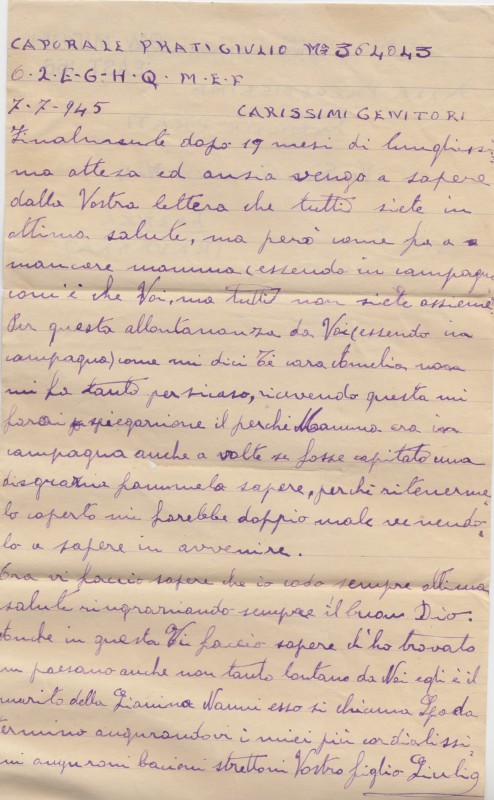 CAPORALE PRATI GIULIO Mª 364043
6-2-E-G-H-Q-M-E-F
7-7-945 CARISSIMI GENITORI
Finalmente dopo 19 mesi di lunghissi=
ma attesa ed ansia vengo a sapere
dalla Vostra lettera che tutti siete in
ottima salute, ma però come fa a
mancare mamma (essendo in campagna
com'è che Voi, ma tutti non siete assieme
Per questa allontananza da Voi (essendo in
campagna) come mi dici Tè cara Amelia non
mi fa tanto persuaso, ricevendo questa mi
farai spiegarnione il perchè Mamma era in
campagna anche a volte se fosse capitato una
disgrazia fammela sapere, perchè ritenerme=
lo coperto mi farebbe doppio male venendo=
lo a sapere in avvenire.
Ora vi faccio sapere che io godo sempre ottima
salute ringraziando sempre il buon Dio.
Anche in questa Vi faccio sapere ch'ho trovato
un paesano anche non tanto lontano da Noi egli è il
marito della Gianina Nanni esso si chiama
termino augurandovi i miei più cordialissi=
mi auguroni bacioni strettoni Vostro figlio Giulio